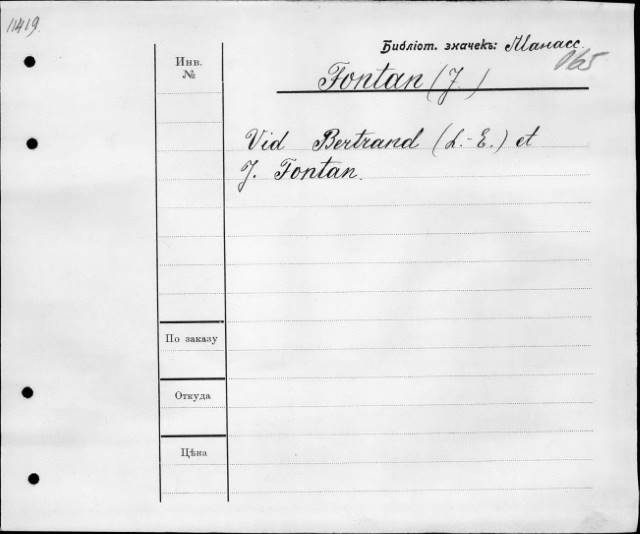 11419.
Библіот. значекъ: Манасс.
065
Инв.
№
Fontan (J.)
Vid Bertrand (L.-E.) et
J. Fontan.
По заказу
Откуда
Цѣна